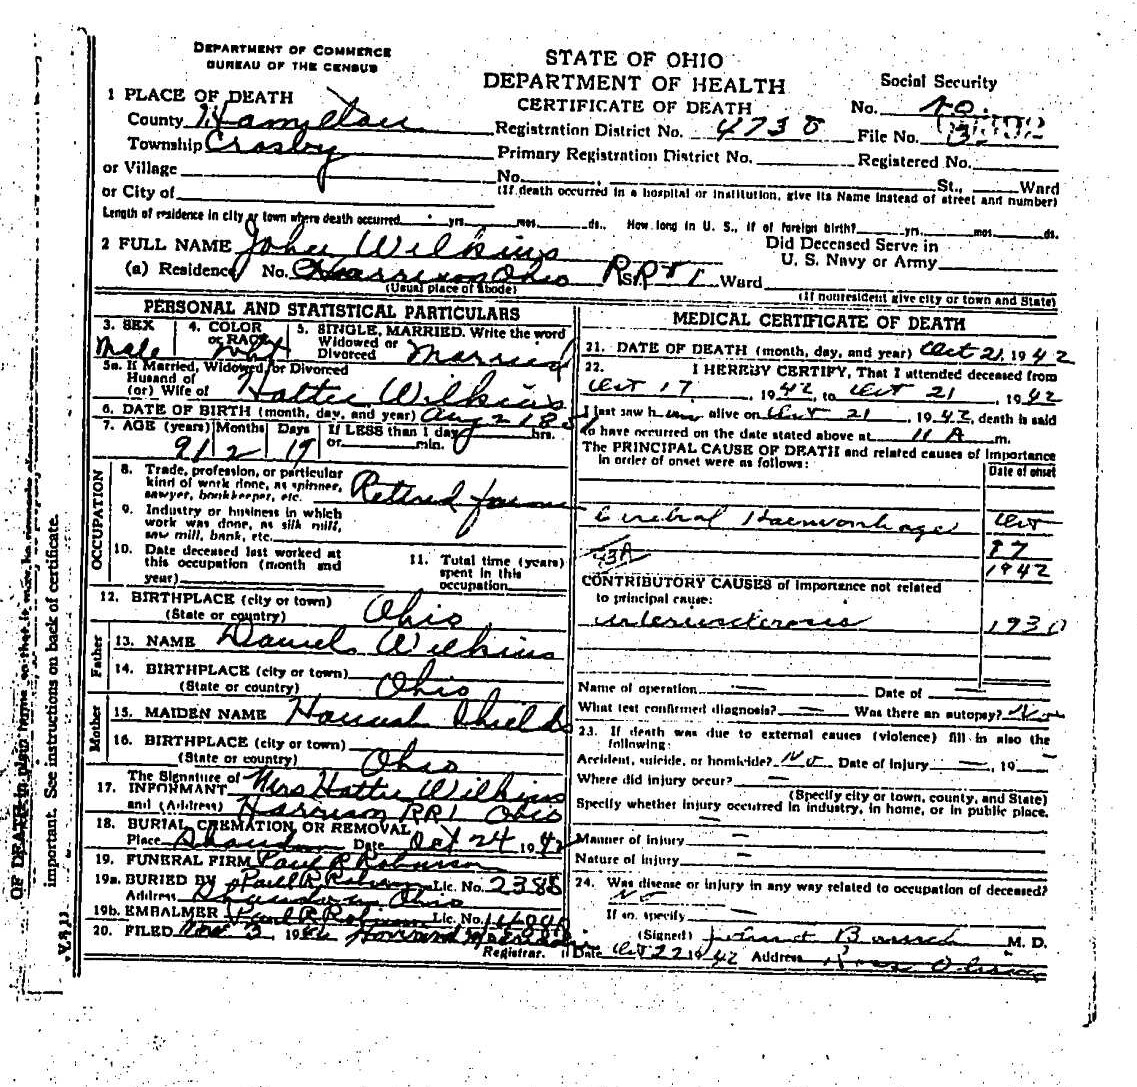 DEPARTMENT OF COMMERCE
BUREAU OF THE CENSUS
STATE OF OHIO
DEPARTMENT OF HEALTH
CERTIFICATE OF DEATH
Social Security
No. no.
1 PLACE OF DEATH
County Hamilton
Registration District No. 4738
File No.
Township Crosby
Primary Registration District No.
Registered No.
or Village
No. St., Ward
or City of
(If death occurred in a hospital or institution, give its Name instead of street and number)
Length of residence in city or town where death occurred yrs. mos. ds. How long in U. S., if of foreign birth? yrs. mos. ds.
2 FULL NAME John Wilkins
Did Deceased Serve in
U. S. Navy or Army
(a) Residence No. Harrison Ohio RR 1 St. Ward
(Usual place of abode)
(If nonresident give city or town and State)
PERSONAL AND STATISTICAL PARTICULARS
3. SEX
Male
4. COLOR
or RACE
5. SINGLE, MARRIED. Write the word
Widowed or
Divorced Married
5a. If Married, Widowed, or Divorced
Husband of
(or) Wife of Hattie Wilkins
6. DATE OF BIRTH (month, day, and year) Aug 2 1851
7. AGE (years) Months Days If LESS than 1 day hrs.
or min.
91 2 19
OCCUPATION
8. Trade, profession, or particular
kind of work done, as spinner,
sawyer, bookkeeper, etc. Retired farmer
9. Industry or business in which
work was done, as silk mill,
saw mill, bank, etc.
10. Date deceased last worked at
this occupation (month and
year)
11. Total time (years)
spent in this
occupation
12. BIRTHPLACE (city or town)
(State or country) Ohio
Father
13. NAME Daniel Wilkins
14. BIRTHPLACE (city or town)
(State or country) Ohio
Mother
15. MAIDEN NAME Hannah Shields
16. BIRTHPLACE (city or town)
(State or country) Ohio
17. The Signature of
INFORMANT Mrs Hattie Wilkins
and (Address) Harrison RR1 Ohio
18. BURIAL, CREMATION OR REMOVAL
Place Shandon Date Oct 24 1942
19. FUNERAL FIRM Paul R Robinson
19a. BURIED BY Paul R Robinson Lic. No. 2388
Address Shandon Ohio
19b. EMBALMER Paul R Robinson Lic. No.
20. FILED Nov 3 19
Registrar.
MEDICAL CERTIFICATE OF DEATH
21. DATE OF DEATH (month, day, and year) Oct 21, 1942
22. I HEREBY CERTIFY, That I attended deceased from
Oct 17, 1942, to Oct 21, 1942
I last saw him alive on Oct 21, 1942, death is said
to have occurred on the date stated above at 11 A m.
The PRINCIPAL CAUSE OF DEATH and related causes of importance
in order of onset were as follows:
Date of onset
Cerebral Haemorrhage Oct
17
1942
83A
CONTRIBUTORY CAUSES of importance not related
to principal cause:
arteriosclerosis 1930
Name of operation — Date of —
What test confirmed diagnosis? — Was there an autopsy? No
23. If death was due to external causes (violence) fill in also the
following:
Accident, suicide, or homicide? No Date of injury —, 19 —
Where did injury occur? —
(Specify city or town, county, and State)
Specify whether injury occurred in industry, in home, or in public place.
—
Manner of injury —
Nature of injury —
24. Was disease or injury in any way related to occupation of deceased?
No
If so, specify —
(Signed) M. D.
Date Oct 22 1942 Address Ross Ohio
important. See instructions on back of certificate.
OF DEATH in plain terms so that it may be
V.S. 11